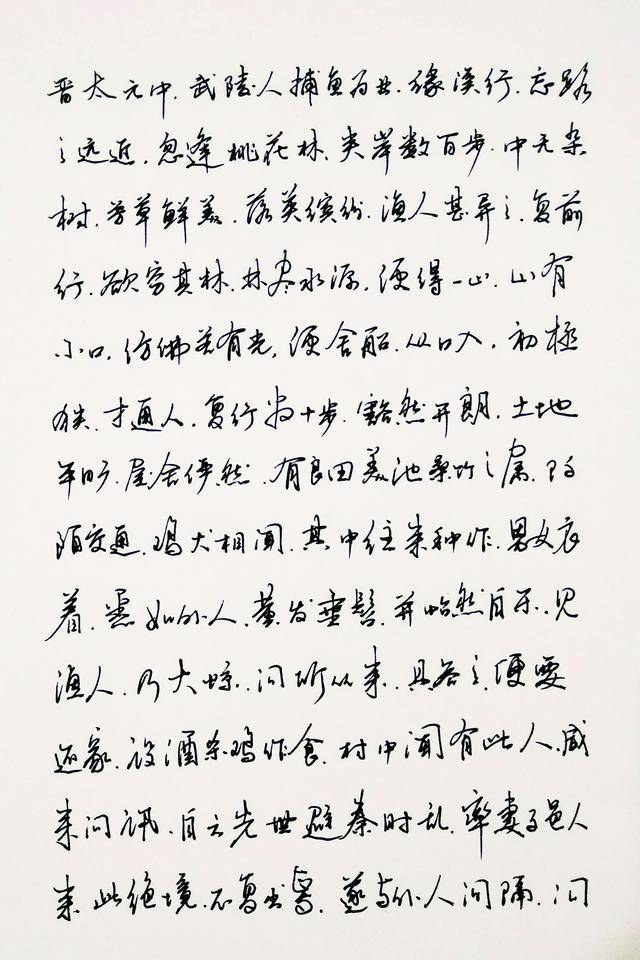 晋太元中.武陵人捕鱼为业.缘溪行.忘路
之远近.忽逢桃花林.夹岸数百步.中无杂
树.芳草鲜美.落英缤纷.渔人甚异之.复前
行.欲穷其林.林尽水源.便得一山.山有
小口.仿佛若有光.便舍船.从口入.初极
狭.才通人.复行数十步.豁然开朗.土地
平旷.屋舍俨然.有良田美池桑竹之属.阡
陌交通.鸡犬相闻.其中往来种作.男女衣
着.悉如外人.黄发垂髫.并怡然自乐.见
渔人.乃大惊.问所从来.具答之.便要
还家.设酒杀鸡作食.村中闻有此人.咸
来问讯.自云先世避秦时乱.率妻子邑人
来此绝境.不复出焉.遂与外人间隔.问